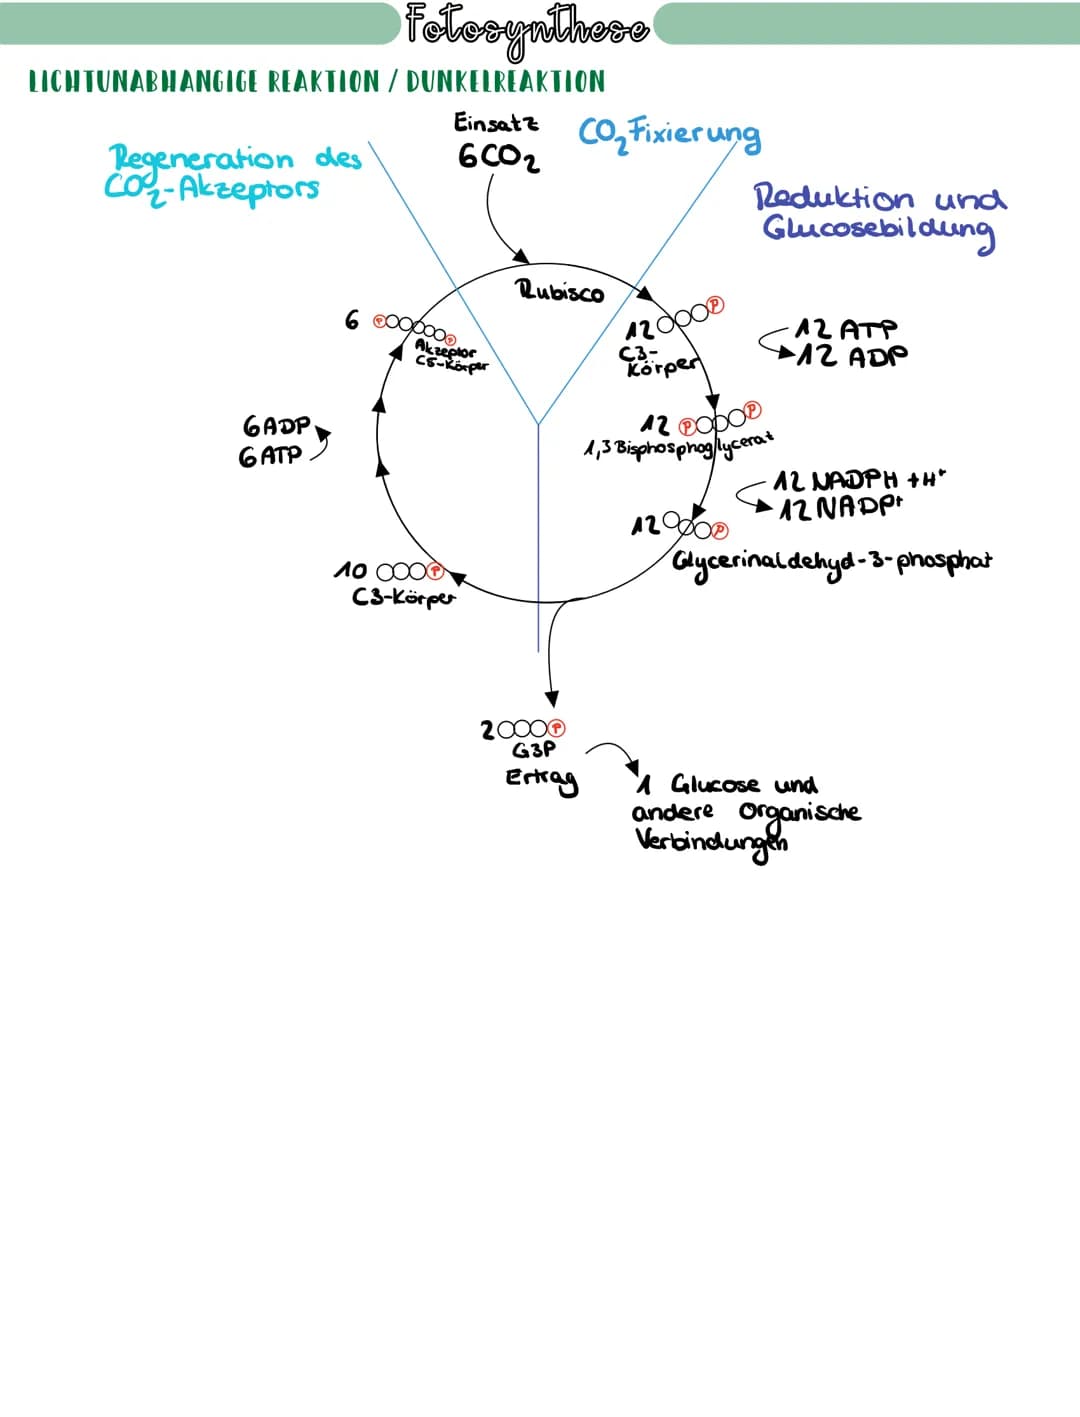 Fotosynthese
LICHTUNABHANGIGE REAKTION / DUNKELREAKTION
Einsatz
6CO₂
CO₂ Fixierung
Regeneration des
CO₂-Akzeptors
Reduktion und
Glucosebildung
Rubisco
6 P P
Akzeptor
C5-Körper
12 P
C3-
Körper
12 ATP
12 ADP
12 P P
1,3 Bisphosphoglycerat
6ADP
6ATP
12 NADPH +H⁺
12 NADP⁺
12 P
Glycerinaldehyd-3-phosphat
10 P
C3-Körper
2 P
G3P
Ertrag
1 Glucose und
andere Organische
Verbindungen